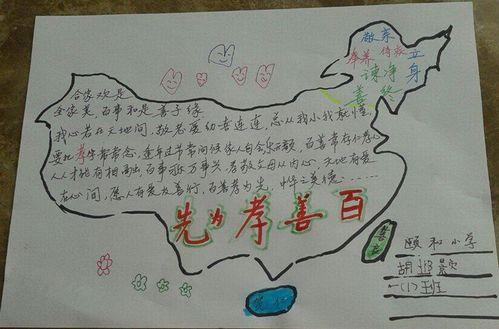 敬亲
奉养 侍疾 立身
谏诤
善终
合家欢是
全家美，百事和是善子缘
我心者在天地间，敬老爱幼孝连连，总从我小我就懂，
要把孝字常常念，逢年过节常问候家人自会乐百颜，百善常存行孝心
人人才能有相融，百事顺万事兴，孝敬父母从内心，天地有爱
在心间，愿人有爱友善行，百善孝为先，中华之美德……
百善孝为先
颐和小学
胡
一(1)班